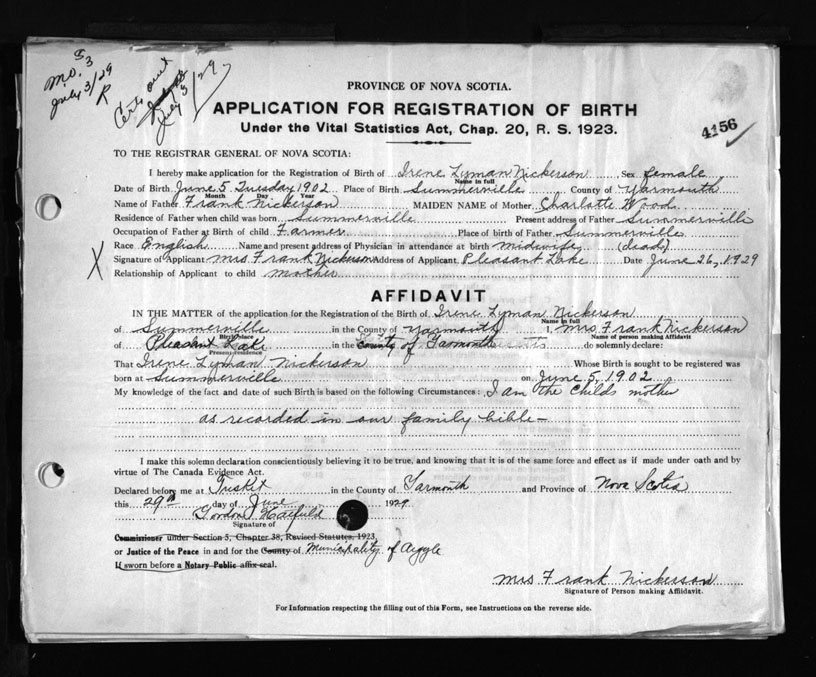 M.O. $3
July 3/29
R
Certs out
July 3/29
PROVINCE OF NOVA SCOTIA.
APPLICATION FOR REGISTRATION OF BIRTH
Under the Vital Statistics Act, Chap. 20, R. S. 1923.
4156
TO THE REGISTRAR GENERAL OF NOVA SCOTIA:
I hereby make application for the Registration of Birth of Irene Lyman Nickerson Sex female
Name in full
Date of Birth June 5 Tuesday 1902 Place of Birth Summerville County of Yarmouth
Month Day Year
Name of Father Frank Nickerson MAIDEN NAME of Mother Charlotte Wood
Residence of Father when child was born Summerville Present address of Father Summerville
Occupation of Father at Birth of child Farmer Place of birth of Father Summerville
Race English Name and present address of Physician in attendance at birth midwife (dead)
X Signature of Applicant Mrs Frank Nickerson Address of Applicant Pleasant Lake Date June 26, 1929
Relationship of Applicant to child mother
AFFIDAVIT
IN THE MATTER of the application for the Registration of the Birth of Irene Lyman Nickerson
Name in full
of Summerville in the County of Yarmouth I, Mrs Frank Nickerson
Birthplace Name of person making Affidavit
of Pleasant Lake in the County of Yarmouth do solemnly declare:
Present residence
That Irene Lyman Nickerson Whose Birth is sought to be registered was
born at Summerville on June 5, 1902
My knowledge of the fact and date of such Birth is based on the following Circumstances: I am the Childs mother
as recorded in our family bible-
I make this solemn declaration conscientiously believing it to be true, and knowing that it is of the same force and effect as if made under oath and by
virtue of The Canada Evidence Act.
Declared before me at Tusket in the County of Yarmouth and Province of Nova Scotia
this 29th day of June 1929
Gordon Hatfield
Signature of
Commissioner under Section 5, Chapter 38, Revised Statutes, 1923,
or Justice of the Peace in and for the County of Municipality of Argyle
If sworn before a Notary Public affix seal.
Mrs Frank Nickerson
Signature of Person making Affidavit.
For Information respecting the filling out of this Form, see Instructions on the reverse side.